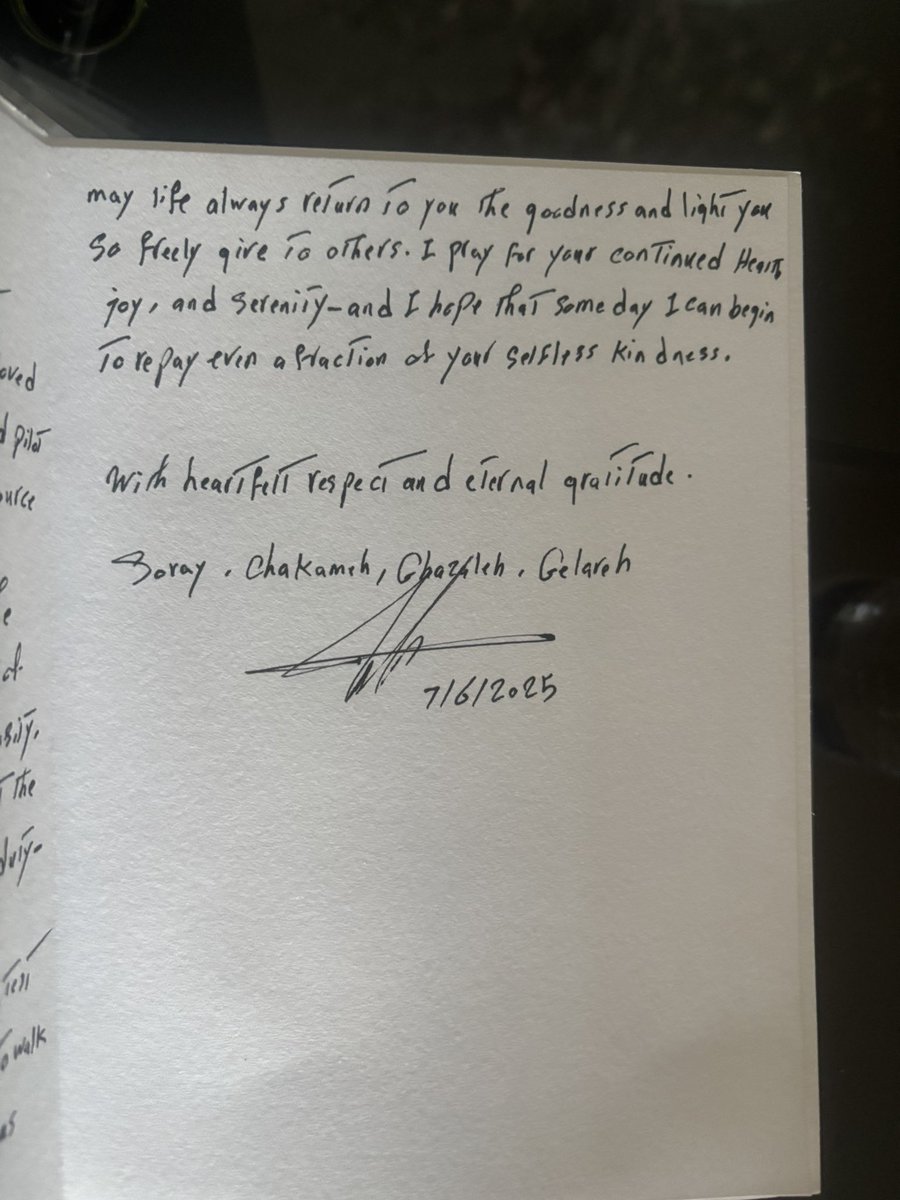 may life always return to you the goodness and light you
so freely give to others. I pray for your continued Heart,
joy, and serenity-and I hope that some day I can begin
To repay even a fraction of your selfless kindness.
With heartfelt respect and eternal gratitude.
Soray, Chakameh, Ghazaleh, Gelareh
7/6/2025
oved
d pilot
ource
e
of
the
duty-
Tell
To walk
as